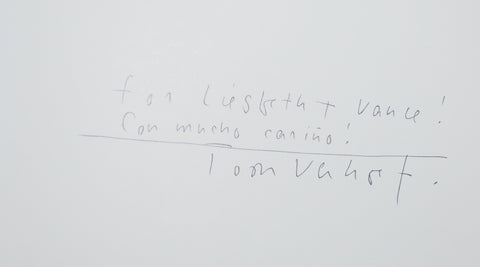 for Liesbeth + Vance!
Con mucho cariño!
Toon Verhoef.